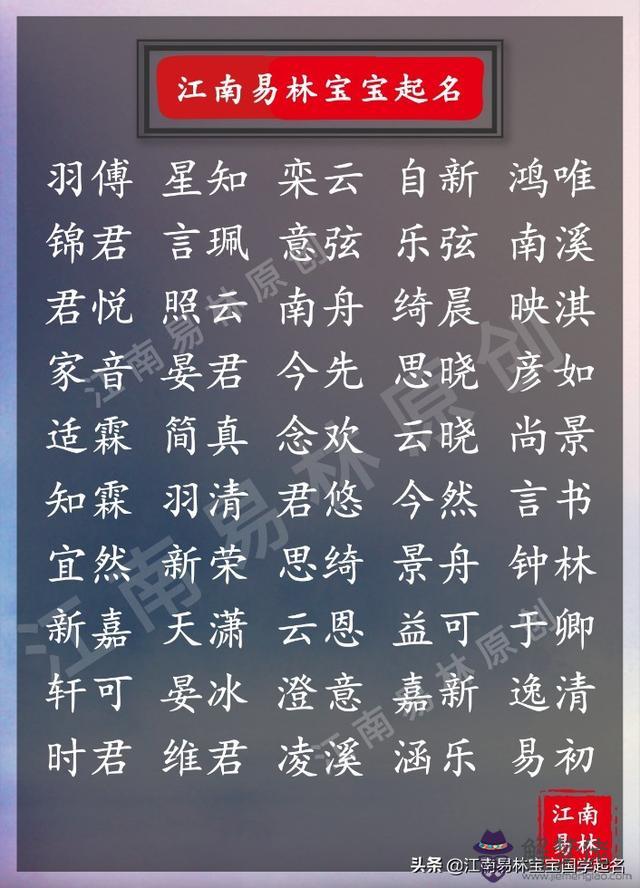 江南易林宝宝起名
羽傅 星知 栾云 自新 鸿唯
锦君 言珮 意弦 乐弦 南溪
君悦 照云 南舟 绮晨 映淇
家音 晏君 今先 思晓 彦如
适霖 简真 念欢 云晓 尚景
知霖 羽清 君悠 今然 言书
宜然 新荣 思绮 景舟 钟林
新嘉 天潇 云恩 益可 于卿
轩可 晏冰 澄意 嘉新 逸清
时君 维君 凌溪 涵乐 易初
江南易林原创
江南易林原创
江南易林原创
江南
易林
头条 @江南易林宝宝国学起名